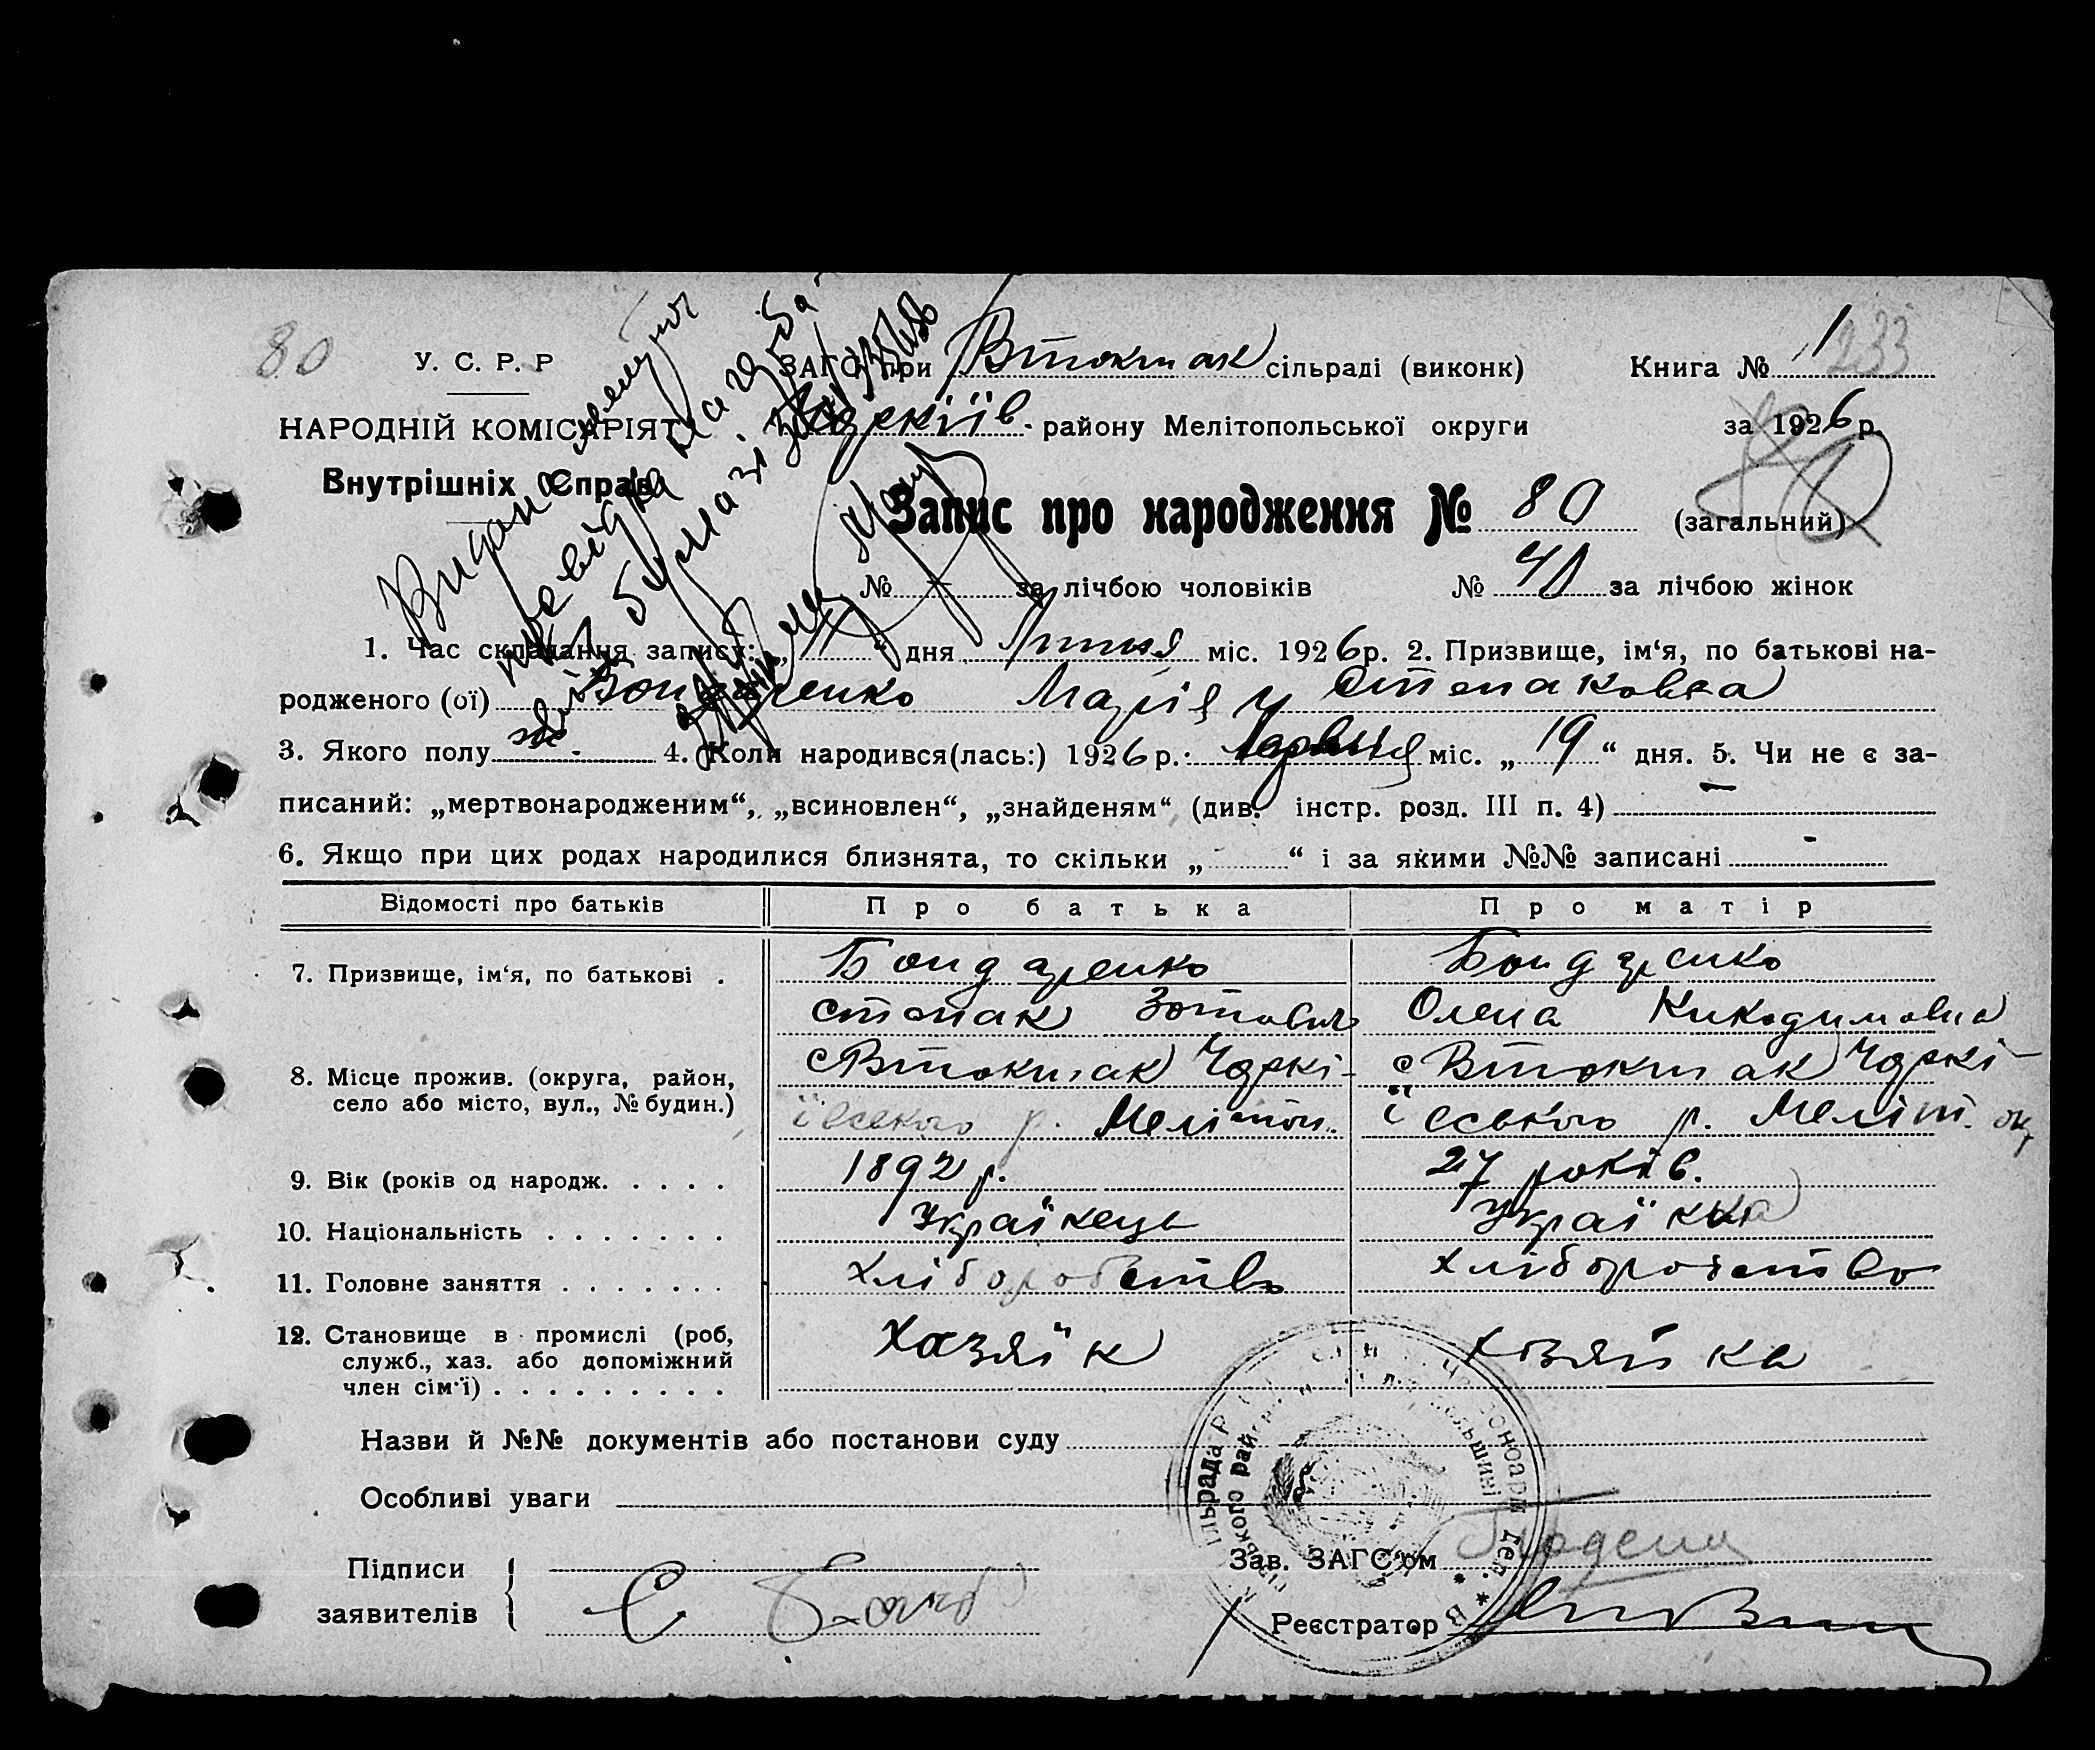 80
У. С. Р. Р
ЗАГС при Втокмак сільраді (виконк) Книга № 1 233
НАРОДНІЙ КОМІСАРІЯТ району Мелітопольської округи за 1926 р.
Внутрішніх Справ
Запис про народження № 80 (загальний) 80
№ за лічбою чоловіків № 41 за лічбою жінок
Видана
1. Час складання запису: „ “ дня Липня міс. 1926 р. 2. Призвище, ім‘я, по батькові на-
родженого (ої) Бондаренко Марія Степановна
3. Якого полу жіс. 4. Коли народився(лась:) 1926 р. міс. „ 19 “ дня. 5. Чи не є за-
писаний: „мертвонародженим“, „всиновлен“, „знайденям“ (див. інстр. розд. III п. 4) —
6. Якщо при цих родах народилися близнята, то скільки „ “ і за якими №№ записані -
Відомості про батьків Про батька Про матір
7. Призвище, ім‘я, по батькові . Бондаренко Бондаренко
Степан Зотович Олена Никодимовна
8. Місце прожив. (округа, район, с Втокмак Чоркі- с Втокмак Чоркі-
село або місто, вул., № будин.) ївського р. Мелітоп. ївського р. Меліт. ок
9. Вік (років од народж. . . . . 1892 р. 27 років.
10. Національність . . . . . . . Українець Українка
11. Головне заняття . . . . . . . Хліборобство хліборобство
12. Становище в промислі (роб, Хазяїн хозяйка
служб., хаз. або допоміжний
член сім‘ї) . . . . . . . . .
Назви й №№ документів або постанови суду
Особливі уваги
Підписи
Зав. ЗАГС‘ом
заявителів
Реєстратор